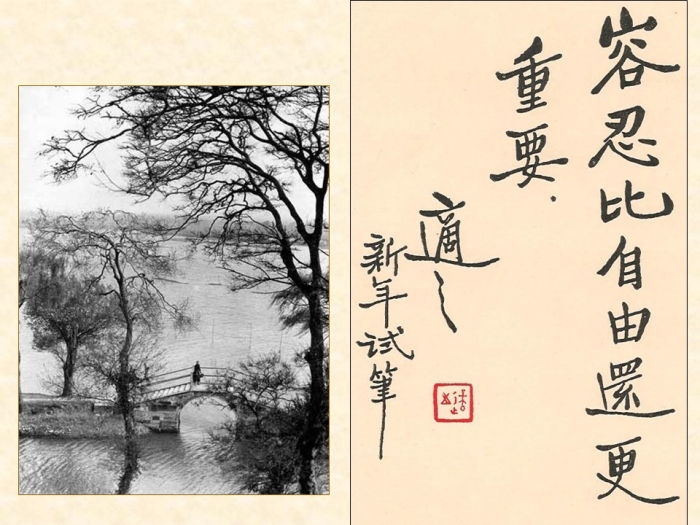 容忍比自由還更
重要．
適之
新年试筆